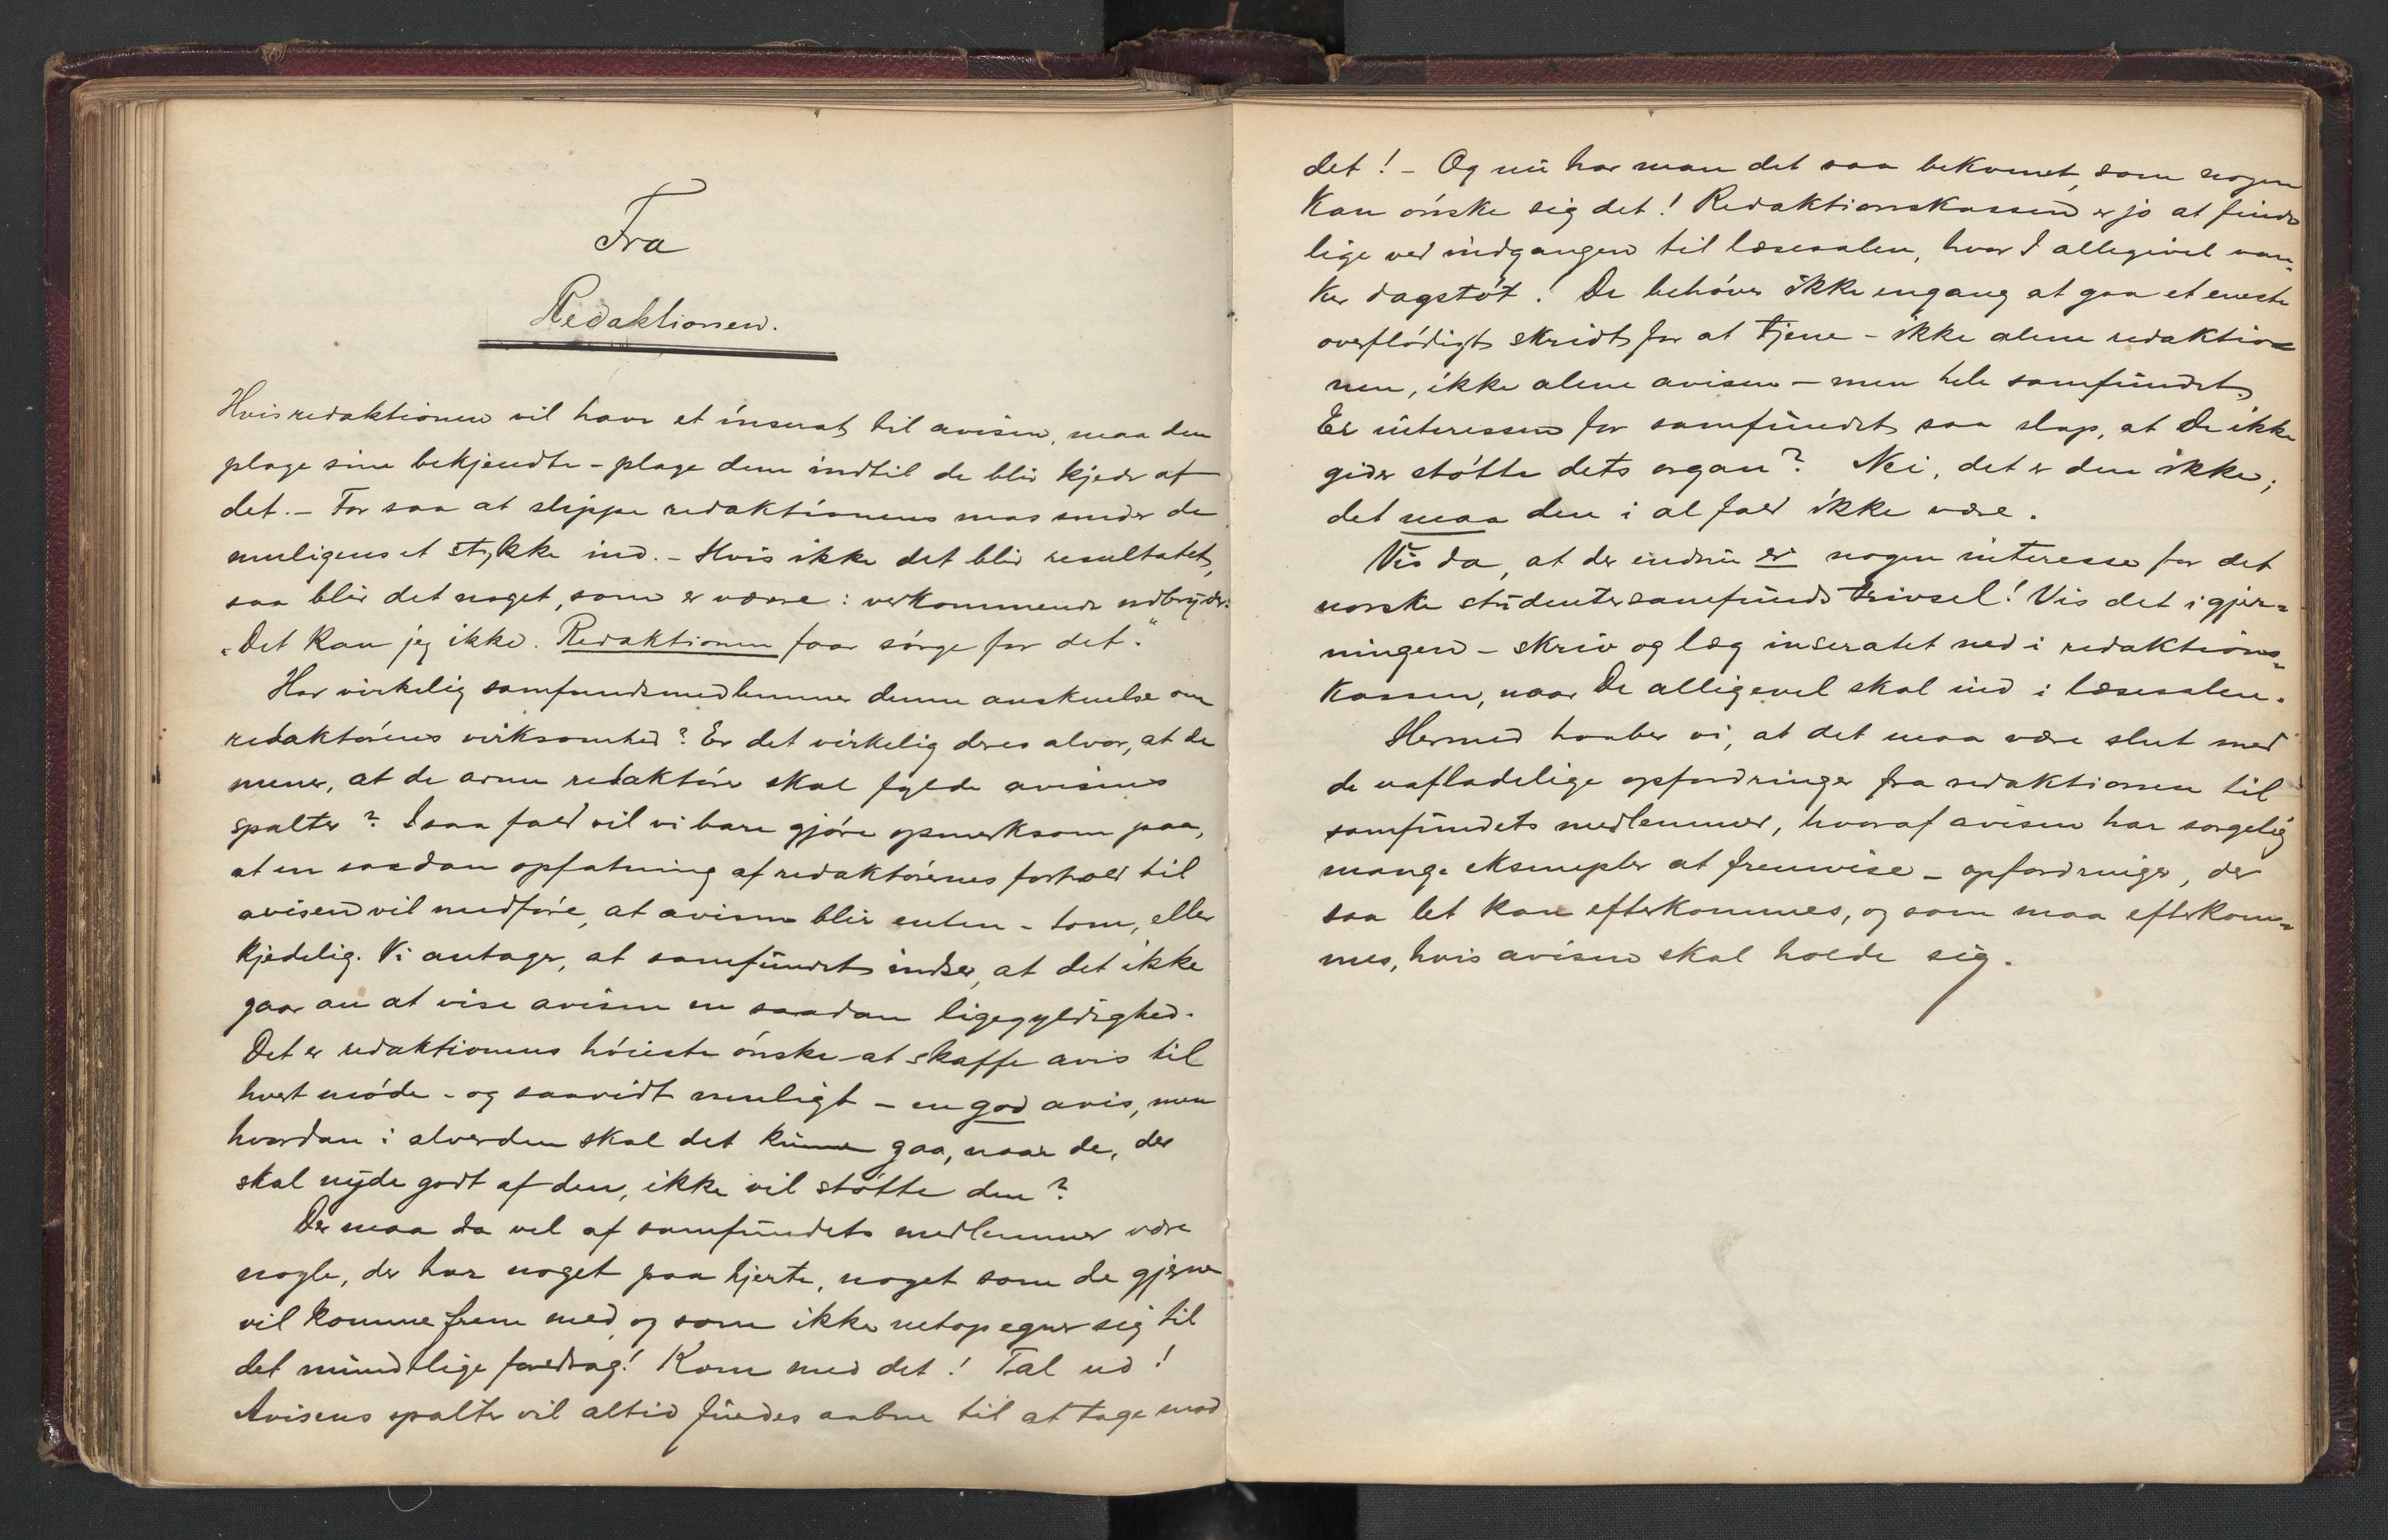 Fra
Redaktionen.
Hvis redaktionen vil have et inserat til avisen, maa den
plage sine bekjendte - plage dem indtil de blir kjede af
det. - For saa at slippe redaktionens mas smider de
muligens et stykke ind. - Hvis ikke det blir resultatet,
saa blir det noget, som er værre: vedkommende udbryder:
„Det kan jeg ikke. Redaktionen faar sørge for det."
Har virkelig samfundsmedlemmer denne anskuelse om
redaktørens virksomhed? Er det virkelig deres alvor, at de
mener, at de arme redaktører skal fylde avisens
spalter? I saa fald vil vi bare gjøre opmerksom paa,
at en saadan opfatning af redaktørernes forhold til
avisen vil medføre, at avisen blir enten - tom, eller
kjedelig. Vi antager, at samfundet indser, at det ikke
gaar an at vise avisen en saadan ligegyldighed.
Det er redaktionens høieste ønske at skaffe avis til
hvert møde - og saavidt muligt - en god avis, men
hvordan i alverden skal det kunne gaa, naar de, der
skal nyde godt af den, ikke vil støtte den?
Der maa da vel af samfundets medlemmer være
nogle, der har noget paa hjerte, noget som de gjerne
vil komme frem med og som ikke netop egner sig til
det mundtlige foredrag! Kom med det! Tal ud!
Avisens spalter vil altid findes aabne til at tage mod
det! - Og nu har man det saa bekvemt, som nogen
kan ønske sig det! Redaktionskassen er jo at finde
lige ved indgangen til læsesalen, hvor I allegivel van-
ker dagstøt! De behøver ikke engang at gaa et eneste
overflødigt skridt for at tjene - ikke alene redaktio-
nen, ikke alene avisen - men hele samfundet.
Er interessen for samfundet saa slap, at De ikke
gider støtte dets organ? Nei, det er den ikke;
det maa den i al fald ikke være.
Vis da, at der endnu er nogen interesse for det
norske studentersamfunds trivsel! Vis det i gjer-
ningen - skriv og læg inseratet ned i redaktions-
kassen, naar De alligevel skal ind i læsesalen.
Hermed haaber vi, at det maa være slut med
de uafladelige opfordringer fra redaktionen til
samfundets medlemmer, hvoraf avisen har sørgelig
mange eksempler at fremvise - opfordringer, der
saa let kan efterkommes, og som maa efterkom-
mes, hvis avisen skal holde sig.